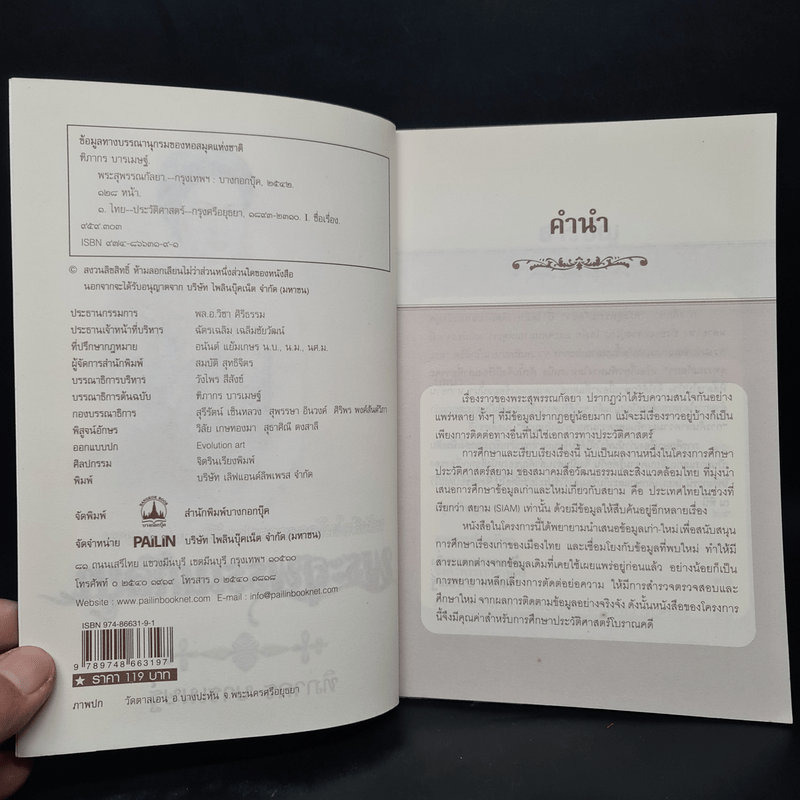 ข้อมูลทางบรรณานุกรมของหอสมุดแห่งชาติ
ทิภากร บารเมษฐ์.
พระสุพรรณกัลยา.--กรุงเทพฯ : บางกอกบุ๊ค, ๒๕๔๒.
๑๒๘ หน้า.
๑. ไทย--ประวัติศาสตร์--กรุงศรีอยุธยา, ๑๘๙๓-๒๓๑๐. I. ชื่อเรื่อง.
๙๕๙.๓๐๓
ISBN ๙๗๔-๘๖๖๓๑-๙-๑
© สงวนลิขสิทธิ์ ห้ามลอกเลียนไม่ว่าส่วนหนึ่งส่วนใดของหนังสือ
นอกจากจะได้รับอนุญาตจาก บริษัท ไพลินบุ๊คเน็ต จำกัด (มหาชน)
ประธานกรรมการ พล.อ.วิชา ศิริธรรม
ประธานเจ้าหน้าที่บริหาร ฉัตรเฉลิม เฉลิมชัยวัฒน์
ที่ปรึกษากฎหมาย อนันต์ แย้มเกษร น.บ., น.ม., นศ.ม.
ผู้จัดการสำนักพิมพ์ สมบัติ สุทธิจิตร
บรรณาธิการบริหาร วังไพร สีสังข์
บรรณาธิการต้นฉบับ ทิภากร บารเมษฐ์
กองบรรณาธิการ สุรีรัตน์ เชิ่นหลวง สุพรรษา อินวงค์ ศิริพร
พิสูจน์อักษร วิลัย เกษทองมา สุธาศิณี ดงสาลี
ออกแบบปก Evolution art
ศิลปกรรม จิตรินเรียงพิมพ์
พิมพ์ บริษัท เลิฟแอนด์ลิพเพรส จำกัด
จัดพิมพ์ สำนักพิมพ์บางกอกบุ๊ค
จัดจำหน่าย PAiLiN บริษัท ไพลินบุ๊คเน็ต จำกัด (มหาชน)
๘๑ ถนนเสรีไทย แขวงมีนบุรี เขตมีนบุรี กรุงเทพฯ ๑๐๕๑๐
โทรศัพท์ ๐ ๒๕๔๐ ๑๙๑๙ โทรสาร ๐ ๒๕๔๐ ๑๘๑๘
Website : www.pailinbooknet.com E-mail : info@pailinbooknet.com
ISBN 974-86631-9-1
9 789748 663197
★ ราคา 119 บาท
ภาพปก วัดตาลเอน อ.บางปะหัน จ.พระนครศรีอยุธยา
คำนำ
เรื่องราวของพระสุพรรณกัลยา ปรากฏว่าได้รับความสนใจกันอย่าง
แพร่หลาย ทั้งๆ ที่มีข้อมูลปรากฏอยู่น้อยมาก แม้จะมีเรื่องราวอยู่บ้างก็เป็น
เพียงการติดต่อทางอื่นที่ไม่ใช่เอกสารทางประวัติศาสตร์
การศึกษาและเรียบเรียงเรื่องนี้ นับเป็นผลงานหนึ่งในโครงการศึกษา
ประวัติศาสตร์สยาม ของสมาคมสื่อวัฒนธรรมและสิ่งแวดล้อมไทย ที่มุ่งนำ
เสนอการศึกษาข้อมูลเก่าและใหม่เกี่ยวกับสยาม คือ ประเทศไทยในช่วงที่
เรียกว่า สยาม (SIAM) เท่านั้น ด้วยมีข้อมูลให้สืบค้นอยู่อีกหลายเรื่อง
หนังสือในโครงการนี้ได้พยายามนำเสนอข้อมูลเก่า-ใหม่เพื่อสนับสนุน
การศึกษาเรื่องเก่าของเมืองไทย และเชื่อมโยงกับข้อมูลที่พบใหม่ ทำให้มี
สาระแตกต่างจากข้อมูลเดิมที่เคยใช้เผยแพร่อยู่ก่อนแล้ว อย่างน้อยก็เป็น
การพยายามหลีกเลี่ยงการตัดต่อย่อความ ให้มีการสำรวจตรวจสอบและ
ศึกษาใหม่ จากผลการติดตามข้อมูลอย่างจริงจัง ดังนั้นหนังสือของโครงการ
นี้จึงมีคุณค่าสำหรับการศึกษาประวัติศาสตร์โบราณคดี